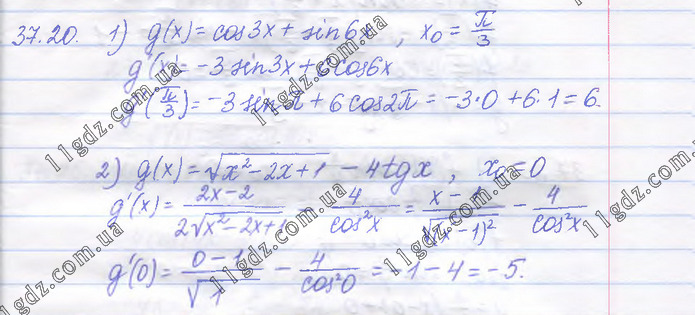 37.20. 1) g(x) = cos3x + sin6x, x₀ = π/3
g'(x) = -3 sin3x + 6 cos6x
g'(π/3) = -3 sin π + 6 cos2π = -3·0 + 6·1 = 6.
2) g(x) = √(x²-2x+1) - 4tgx, x₀ = 0
g'(x) = (2x-2)/(2√(x²-2x+1)) - 4/cos²x = (x-1)/√((x-1)²) - 4/cos²x
g'(0) = (0-1)/√1 - 4/cos²0 = -1-4 = -5.
11gdz.com.ua
11gdz.com.ua
11gdz.com.ua
11gdz.com.ua
11gdz.com.ua
11gdz.com.ua